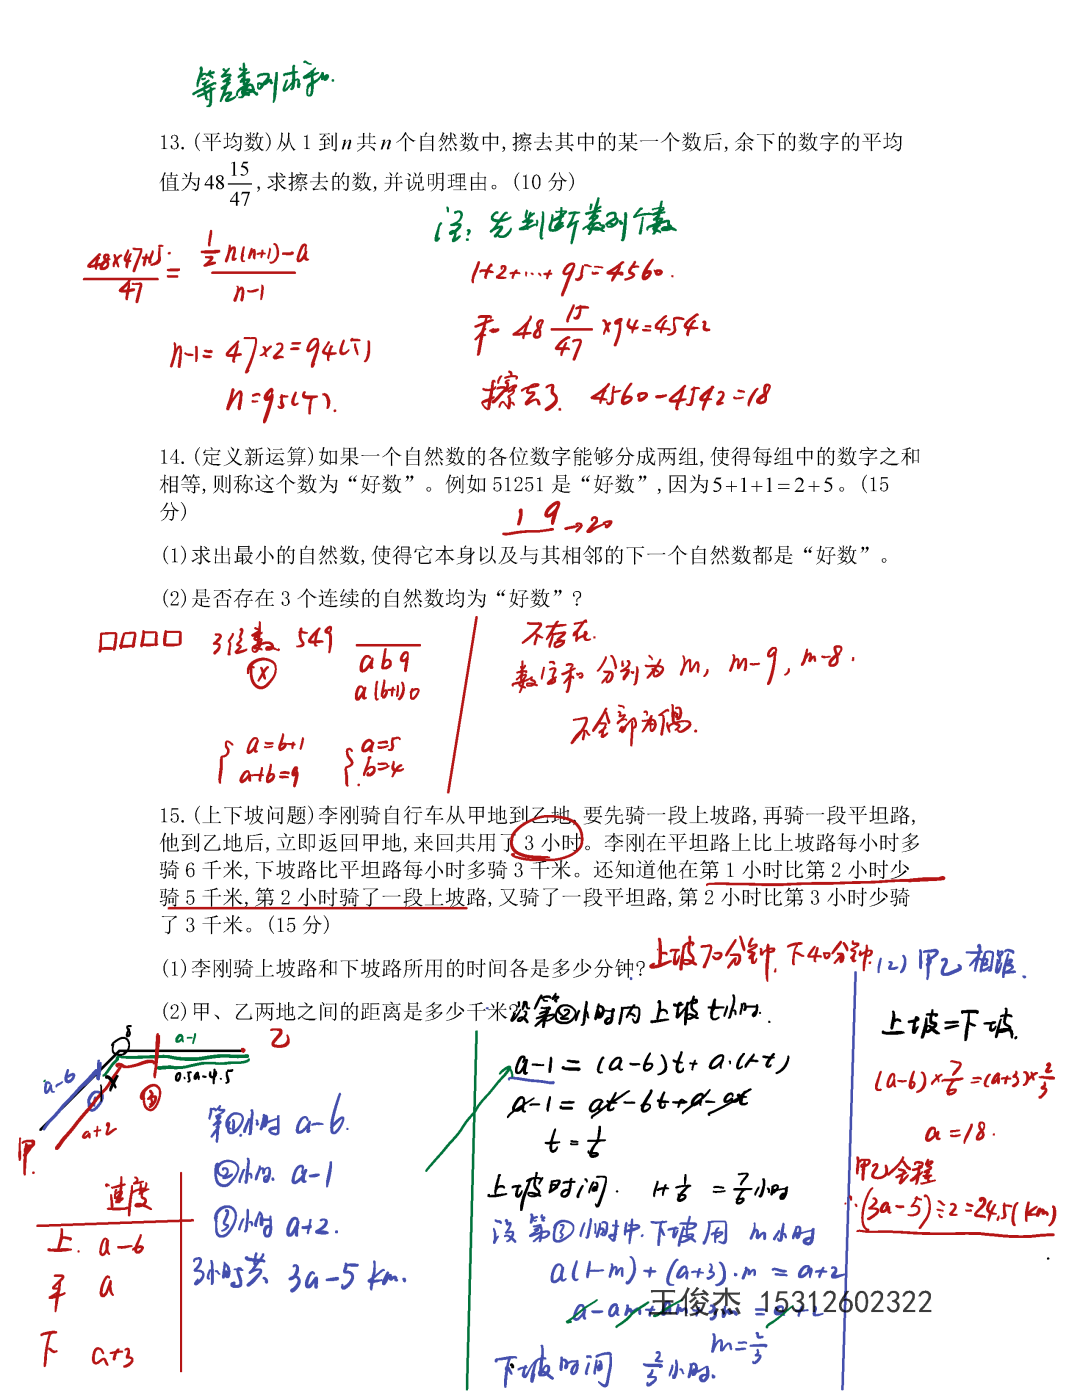 等差数列求和.
13.(平均数)从 1 到n共n个自然数中,擦去其中的某一个数后,余下的数字的平均
值为48 15/47,求擦去的数,并说明理由。(10 分)
注: 先判断数列个数
(48×47+15)/47 = (½n(n+1)-a)/(n-1)
n-1= 47×2=94(个)
n=95(个).
1+2+…+95=4560.
和 48 15/47 ×94=4542
擦去了 4560-4542=18
14.(定义新运算)如果一个自然数的各位数字能够分成两组,使得每组中的数字之和
相等,则称这个数为“好数”。例如 51251 是“好数”,因为5+1+1=2+5。(15
分)
1 9 →20
(1)求出最小的自然数,使得它本身以及与其相邻的下一个自然数都是“好数”。
(2)是否存在 3 个连续的自然数均为“好数”?
□□□□ 3位数 549
(×)
a b 9
a (b+1) 0
{ a=b+1
a+b=9
{ a=5
b=4
不存在.
数位和 分别为 m, m-9, m-8.
不全部为偶.
15.(上下坡问题)李刚骑自行车从甲地到乙地,要先骑一段上坡路,再骑一段平坦路,
他到乙地后,立即返回甲地,来回共用了 3 小时。李刚在平坦路上比上坡路每小时多
骑 6 千米,下坡路比平坦路每小时多骑 3 千米。还知道他在第 1 小时比第 2 小时少
骑 5 千米,第 2 小时骑了一段上坡路,又骑了一段平坦路,第 2 小时比第 3 小时少骑
了 3 千米。(15 分)
(1)李刚骑上坡路和下坡路所用的时间各是多少分钟?
上坡70分钟, 下40分钟.
(2)甲、乙两地之间的距离是多少千米?
a-1
乙
0.5a-4.5
a-6
③
a+2
甲.
速度
上. a-6
平 a
下 a+3
第①小时 a-6.
②小时. a-1
③小时 a+2.
3小时共 3a-5 km.
设第②小时内 上坡 t小时.
a-1 = (a-6)t+ a·(1-t)
a-1 = at-6t+a-at
t = 1/6
上坡时间. 1+1/6 = 7/6小时
设 第③小时中.下坡用 m小时
a(1-m)+(a+3)·m = a+2
a-am+am+3m = a+2
m=2/3
下坡时间 2/3小时.
(2) 甲乙相距.
上坡=下坡.
(a-6)×7/6=(a+3)×2/3
a=18.
甲乙全程
∴(3a-5)÷2=24.5(km)
王俊杰 15312602322